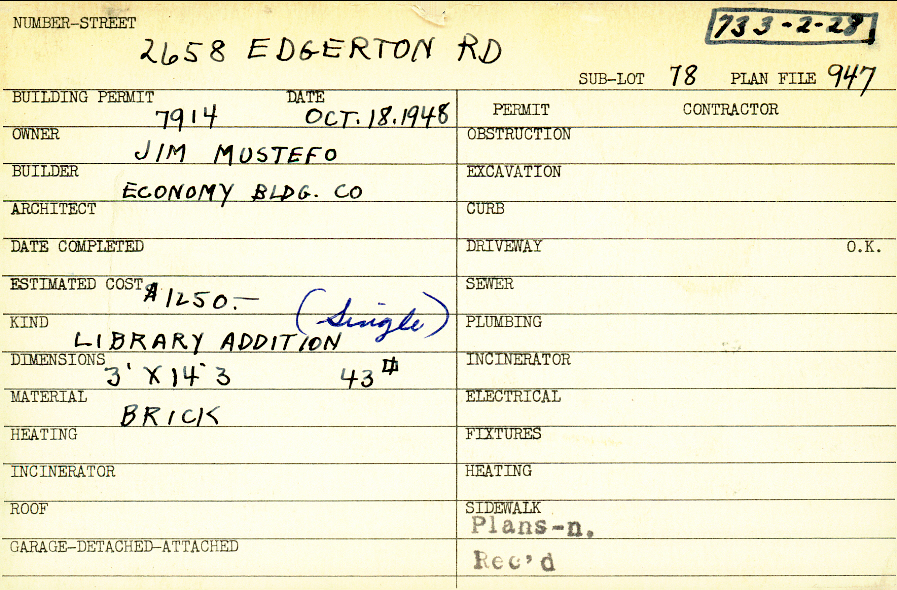 NUMBER-STREET
2658 EDGERTON RD
733-2-28
SUB-LOT 78 PLAN FILE 947
BUILDING PERMIT 7914 DATE OCT. 18. 1948
PERMIT CONTRACTOR
OWNER JIM MUSTEFO
OBSTRUCTION
BUILDER ECONOMY BLDG. CO
EXCAVATION
ARCHITECT
CURB
DATE COMPLETED
DRIVEWAY O.K.
ESTIMATED COST $1250.—
SEWER
KIND LIBRARY ADDITION (Single)
PLUMBING
DIMENSIONS 3' X 14' 3 43 #
INCINERATOR
MATERIAL BRICK
ELECTRICAL
HEATING
FIXTURES
INCINERATOR
HEATING
ROOF
SIDEWALK
Plans-n.
GARAGE-DETACHED-ATTACHED
Rec'd